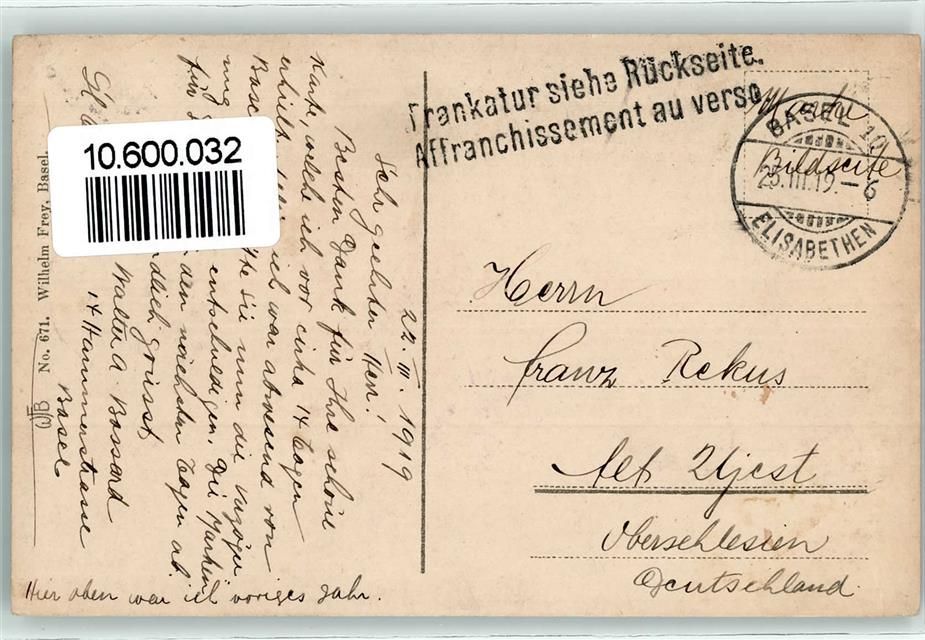 Frankatur siehe Rückseite.
Affranchissement au verso
Marke
Bildseite
BASEL 10
25.III.19-6
ELISABETHEN
10.600.032
22. III. 1919
Sehr geehrter Herr!
Besten Dank für Ihre schöne
Karte, welche ich vor cirka 14 Tagen
erhielt, weil ich war abwesend von
Bas Sie nun die Verzöger
ung entschuldigen. Die Marken
für den nächsten Tagen ab
ndlich grüsst
Walter A. Bossard
14 Hammerstrasse
Basel
Hier oben war ich voriges Jahr.
Herrn
Franz Rekus
Alt Ujest
Oberschlesien
Deutschland.
WFB No. 671. Wilhelm Frey, Basel